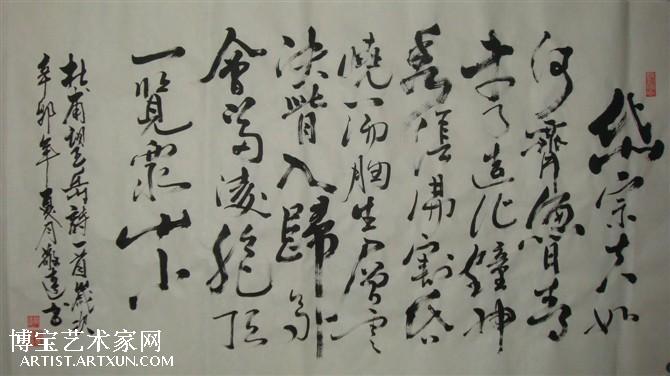 岱宗夫如
何齊魯青
未了造化鍾神
秀陰陽割昏
曉蕩胸生曾雲
決眥入歸鳥
會當凌絕頂
一覽衆山小
杜甫望岳詩一首歲次
辛卯年夏月
博宝艺术家网
ARTIST.ARTXUN.COM